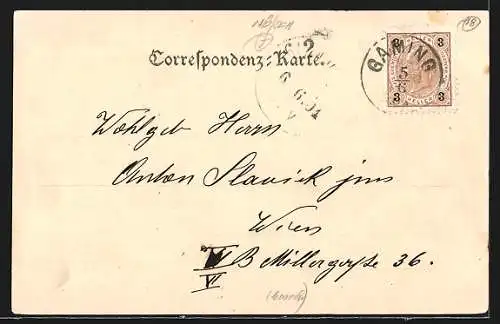 Correspondenz-Karte.
GAMING
5
6
3 3
3 3
6
6.01
Wohlgeb Herrn
Anton Slavick jun
Wien
VI B Millergasse 36.
VI